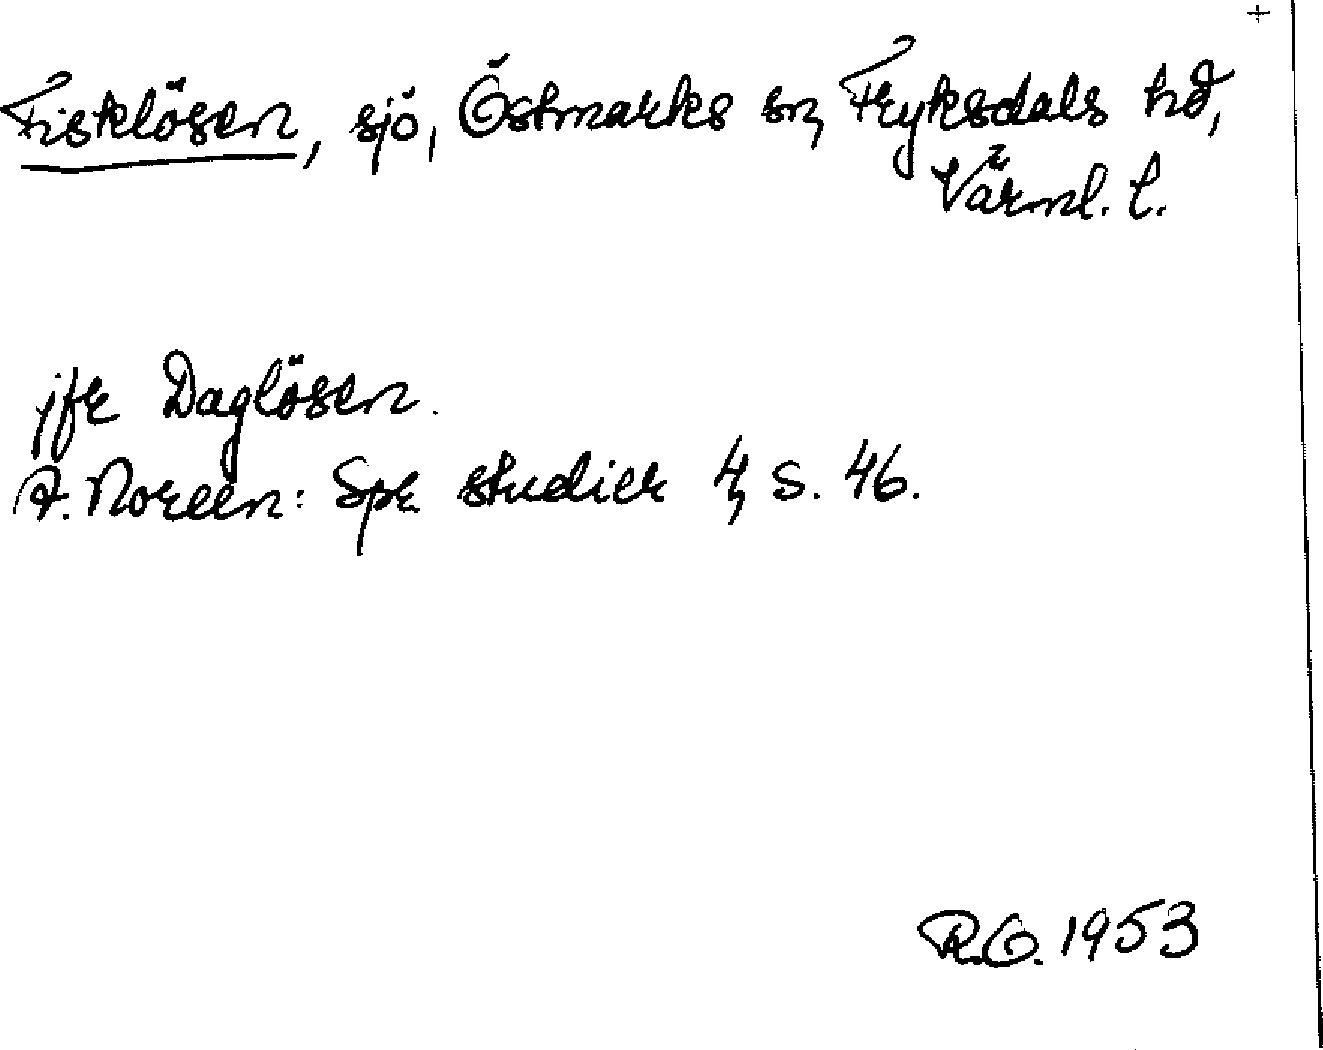 +
Fisklösen, sjö, Östmarks sn, Fryksdals hd,
Värml. l.
jfr Daglösen.
A. Noreen: Spr studier 4, s. 46.
R.O. 1953